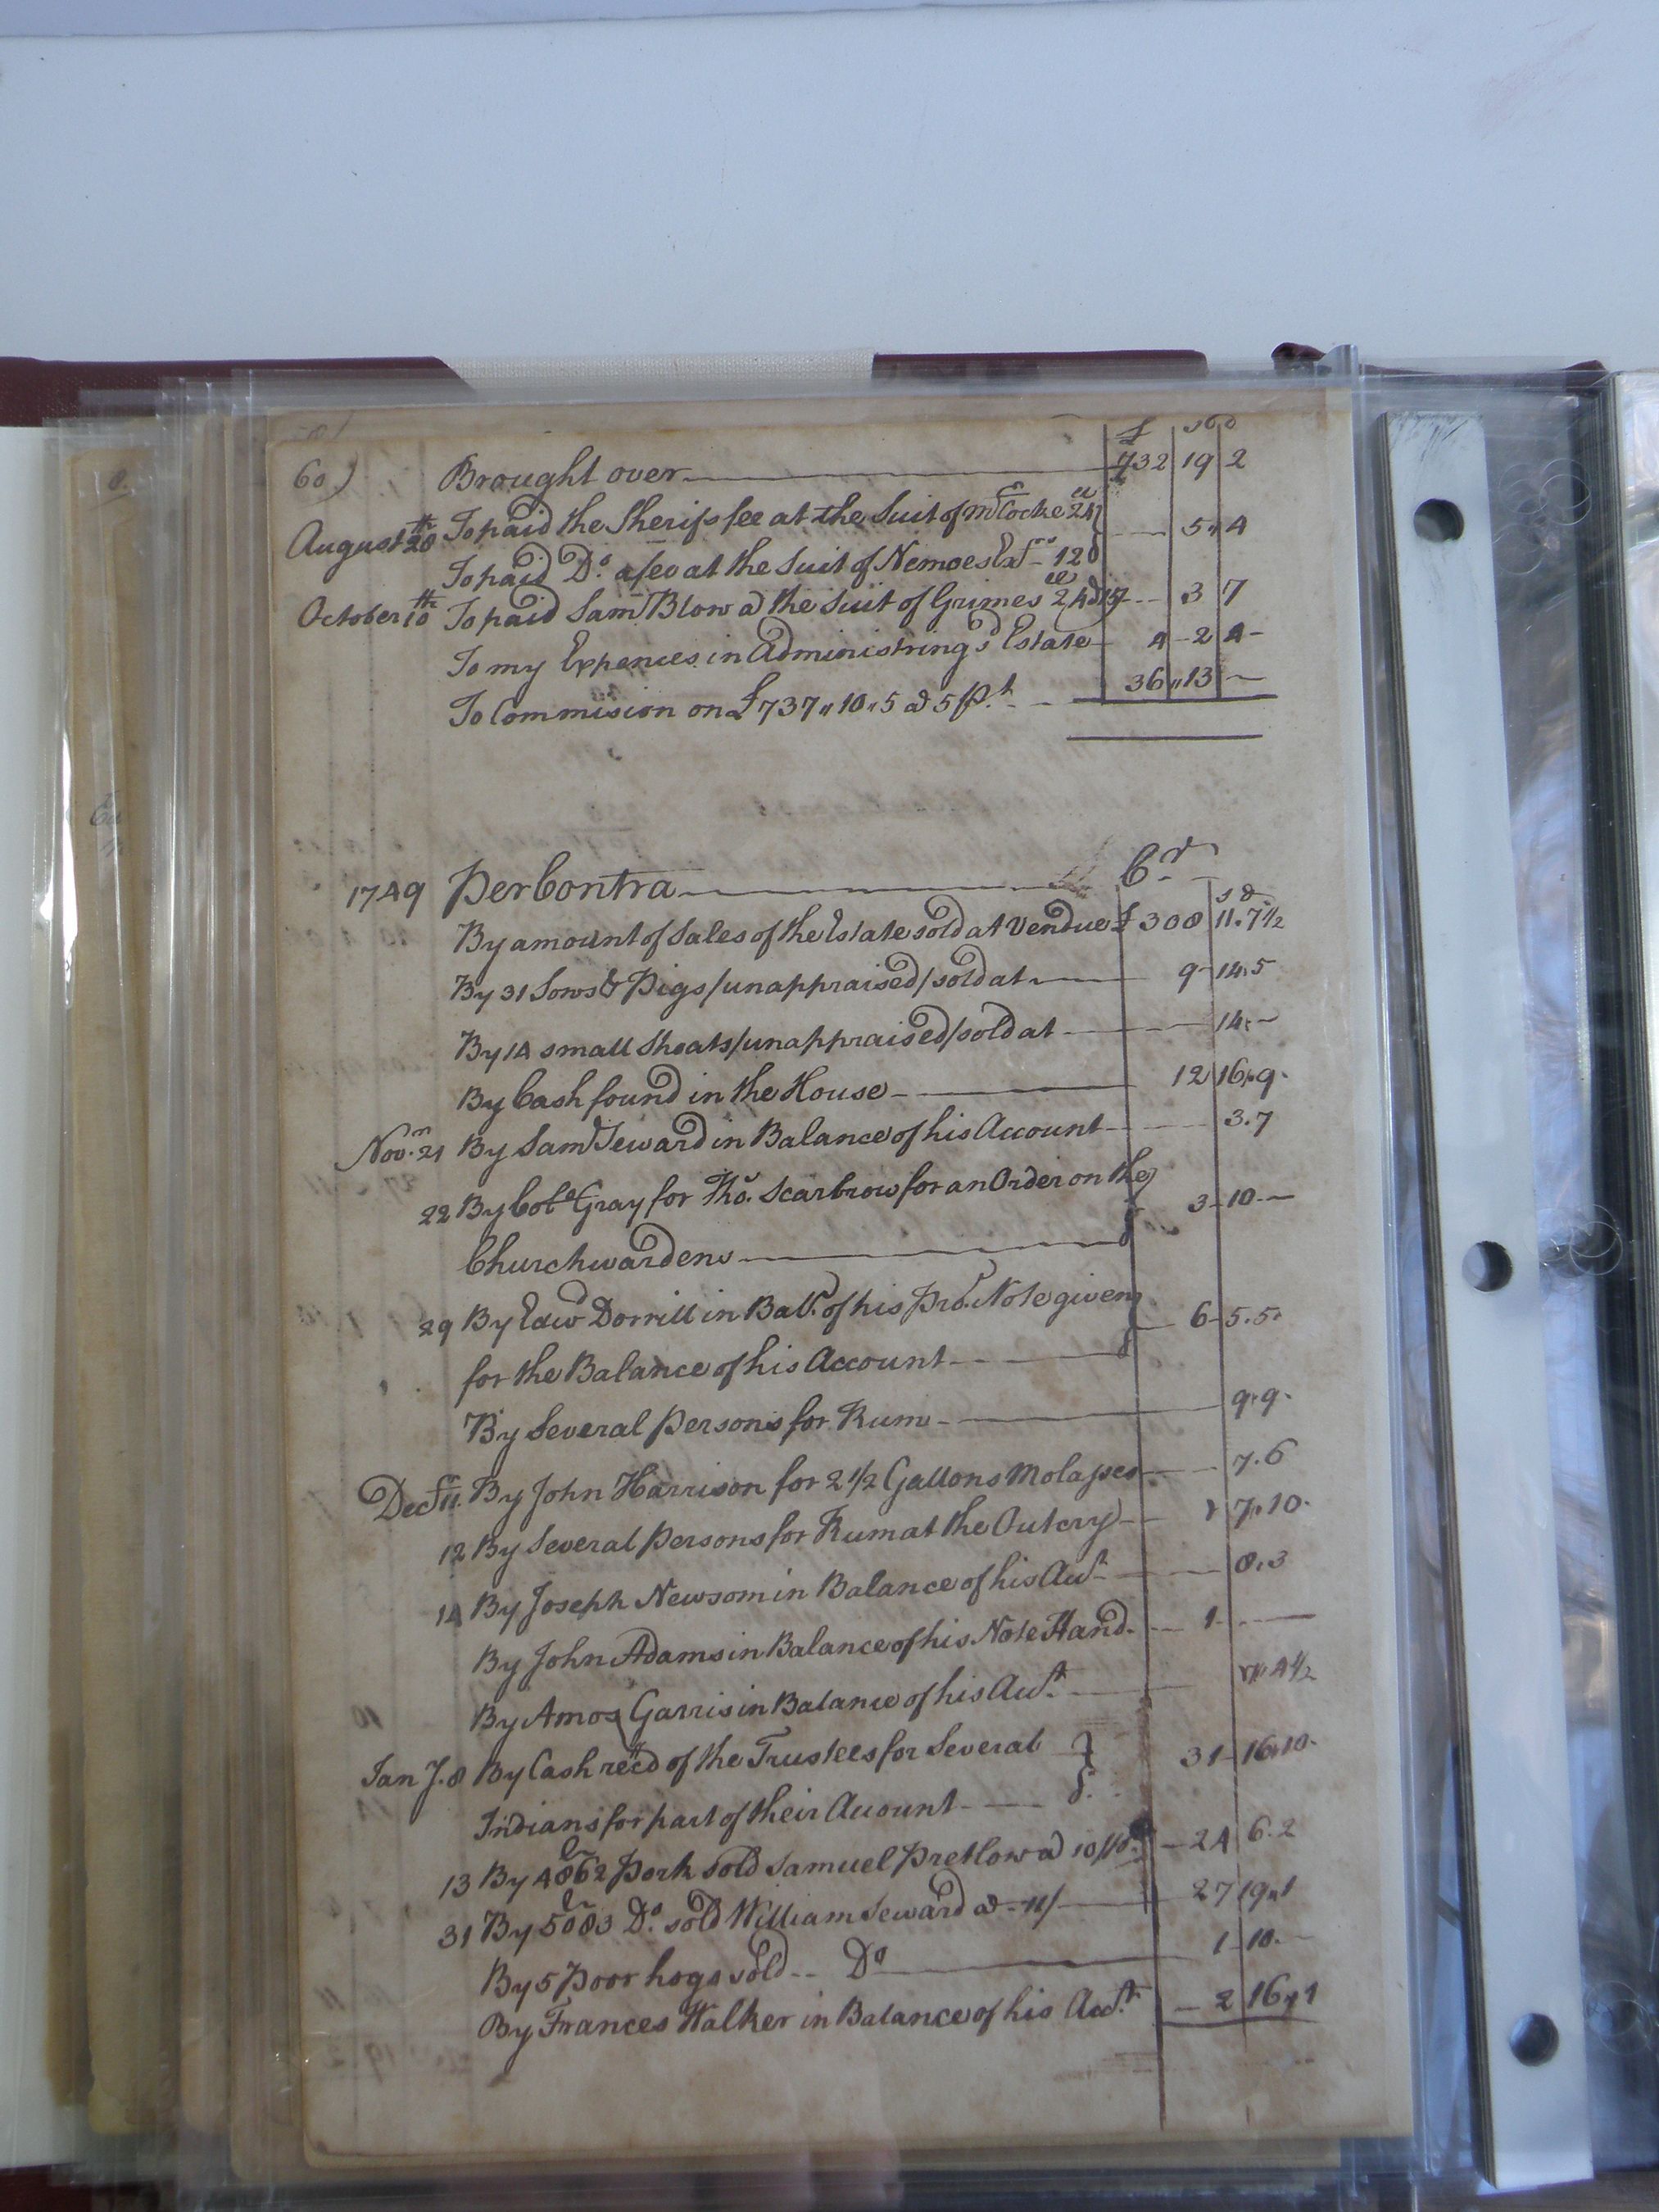 £ s d
60) Brought over 732 19 2
August 28th To paid the Sherifs fee at the Suit of Mr Cocke 24 5 „ 4
To paid Do. a feo at the Suit of Nemoes Exrs 12
October 10th To paid Saml Blow a the Suit of Grimes 3 7
To my Expences in Administring sd Estate 4 - 2 4 -
To Commision on £737 „ 10 „ 5 a 5 Pt. 36 „ 13 -
1749 Per Contra Cr
s d
By amount of Sales of the Estate sold at Vendue £ 308 11. 7 1/2
By 31 Sows & Pigs /unappraised/ sold at 9 - 14. 5
By 14 small Shoats /unappraised/ sold at 14. -
By Cash found in the House 12 16 „ 9.
Novr. 21 By Saml Seward in Balance of his Account 3. 7
22 By Colo Gray for Tho. Scarbrow for an Order on the
3 - 10 -
Churchwardens
29 By Edwd Dorrill in Ball. of his Pro. Note given
6 - 5. 5.
for the Balance of his Account
By Several Persons for Rum 9. 9.
Decr 11. By John Harrison for 2 1/2 Gallons Molasses 7. 6
12 By Several Persons for Rum at the Outcry 7 „ 10.
14 By Joseph Newsom in Balance of his Acct 8. 3
By John Adams in Balance of his Note Hand 1 -
By Amos Garris in Balance of his Acct. 4 1/2
Jan y. 8 By Cash reced of the Trustees for Several 31 - 16 „ 10.
Indians for part of their Account
13 By 4862 Pork sold Samuel Pretlow a 10/ 24 6. 2
31 By 5083 Do. sold William Seward a 11/ 27 19 „ 1
By 5 Poor hogs sold Do 1 - 10 -
By Frances Walker in Balance of his Acct. 2 16 „ 1